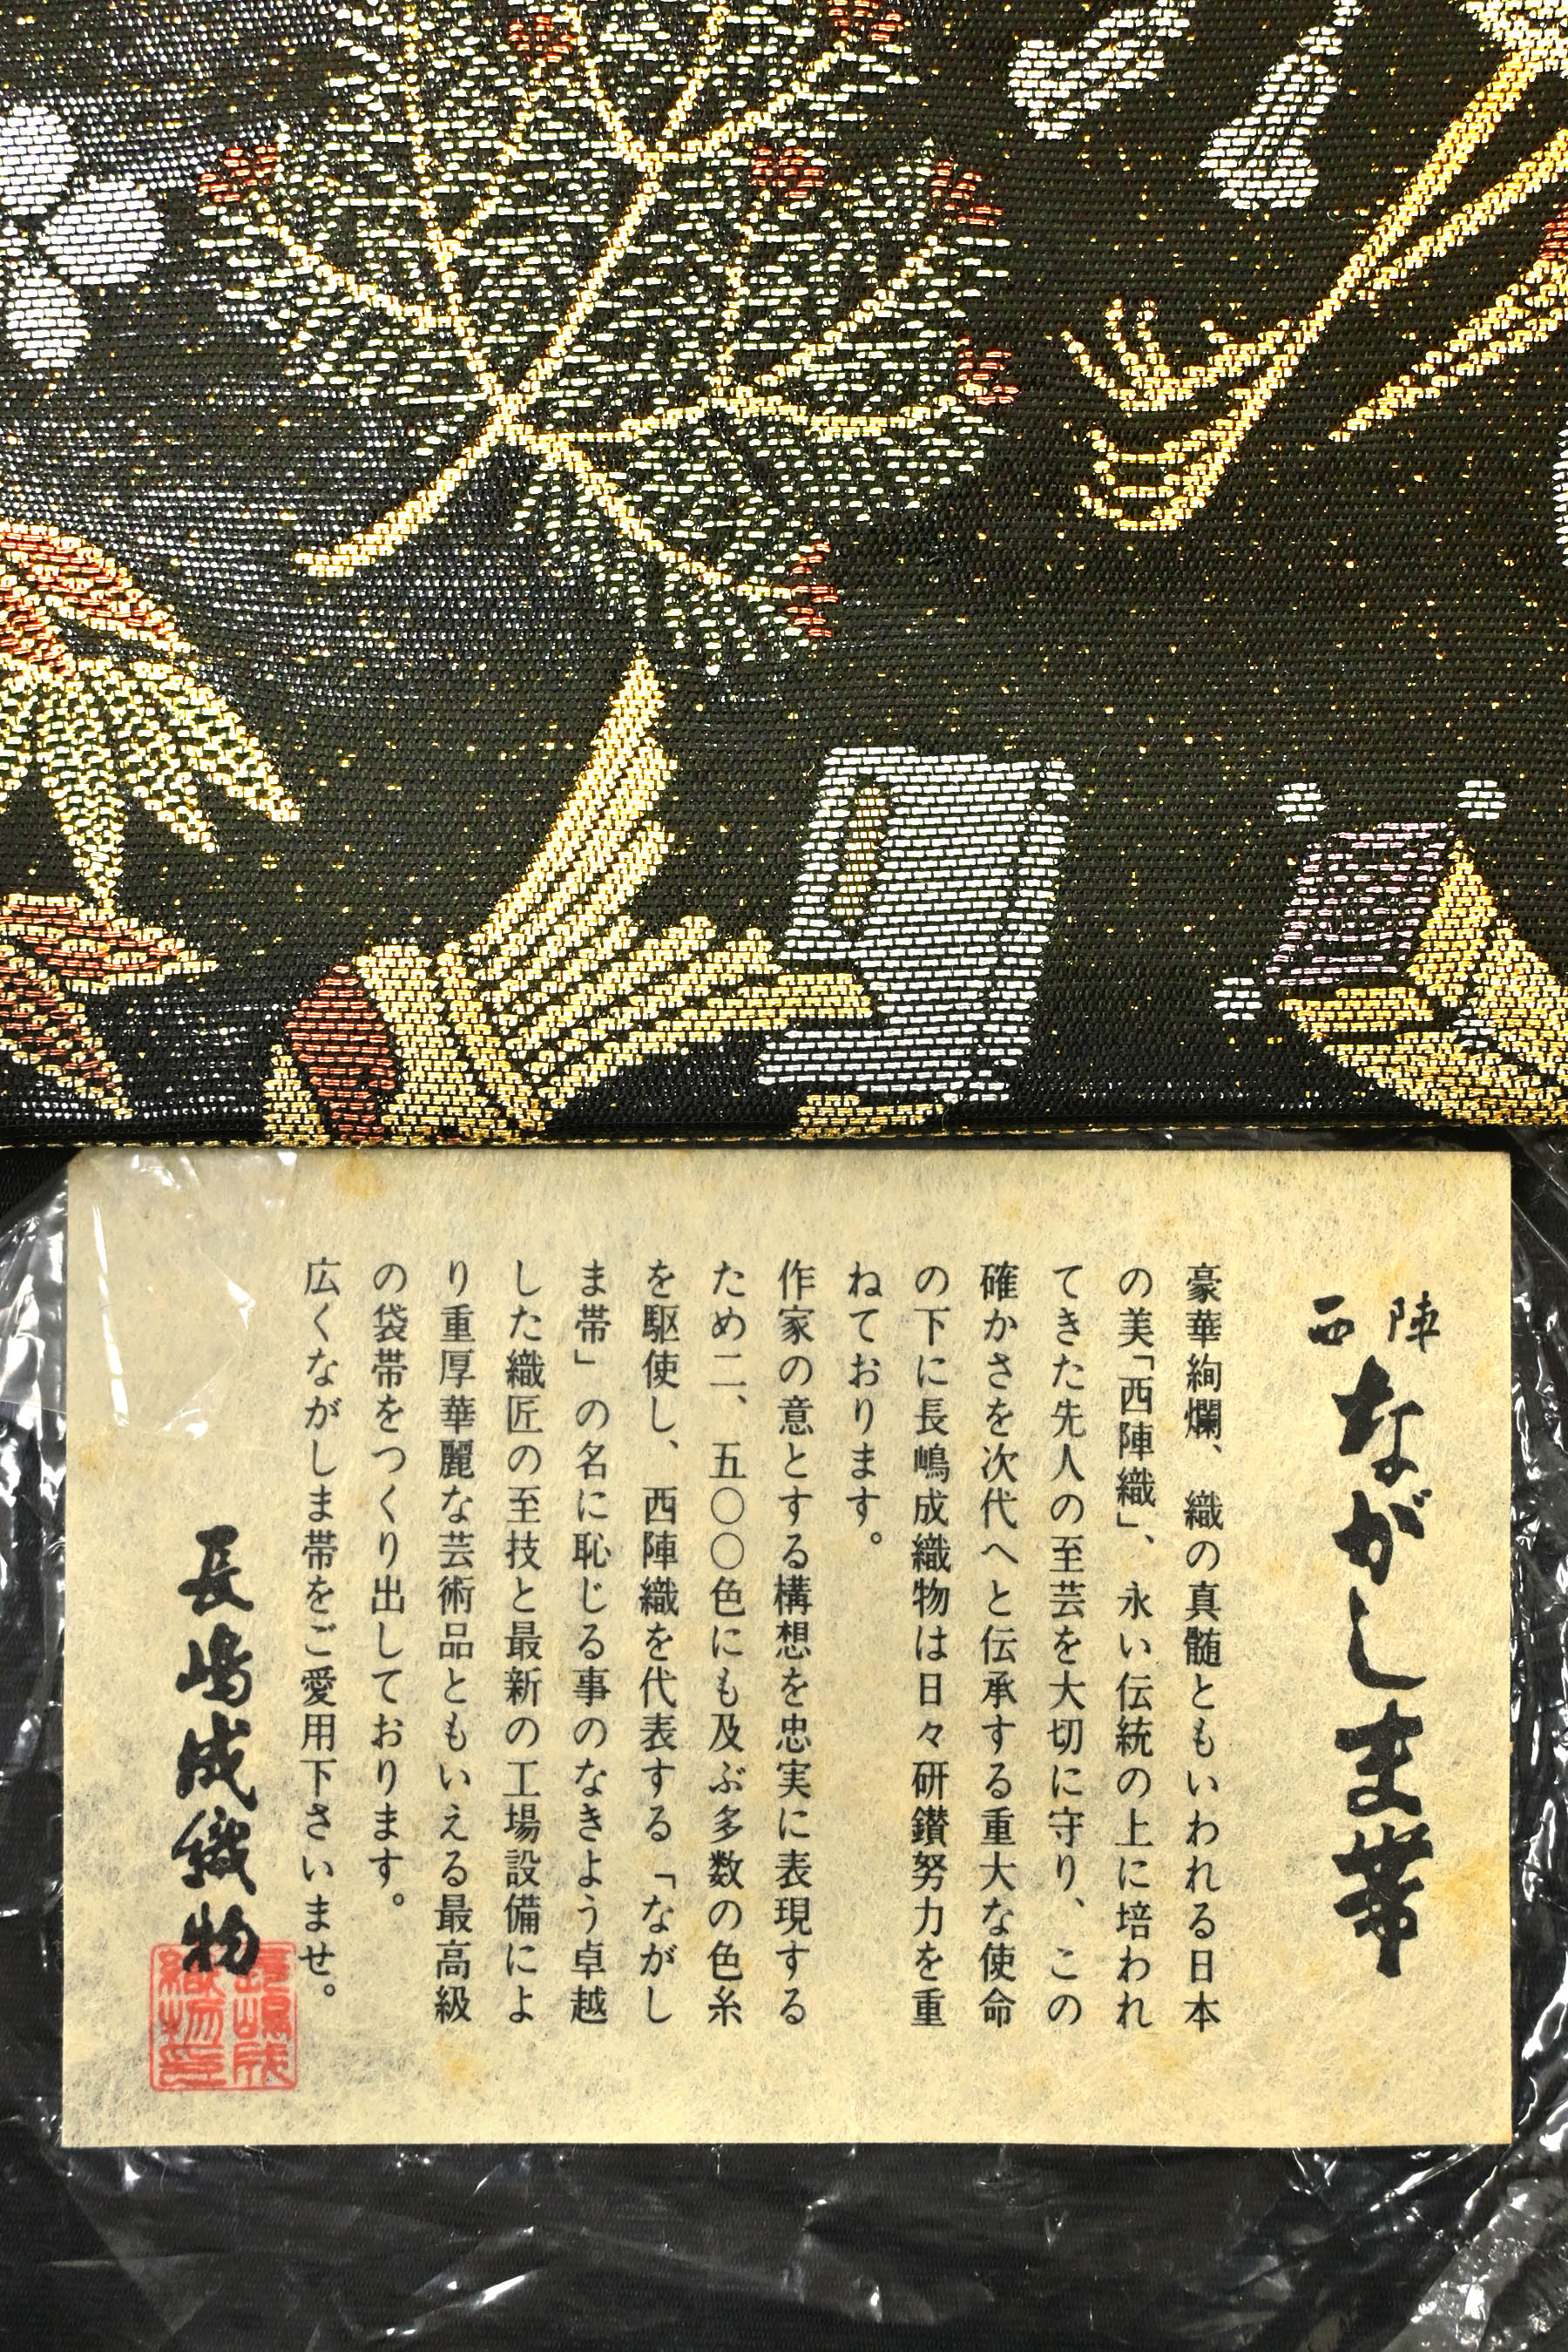 西陣
ながしま帯
豪華絢爛、織の真髄ともいわれる日本
の美「西陣織」、永い伝統の上に培われ
てきた先人の至芸を大切に守り、この
確かさを次代へと伝承する重大な使命
の下に長嶋成織物は日々研鑚努力を重
ねております。
作家の意とする構想を忠実に表現する
ため二、五〇〇色にも及ぶ多数の色糸
を駆使し、西陣織を代表する「ながし
ま帯」の名に恥じる事のなきよう卓越
した織匠の至技と最新の工場設備によ
り重厚華麗な芸術品ともいえる最高級
の袋帯をつくり出しております。
広くながしま帯をご愛用下さいませ。
長嶋成織物